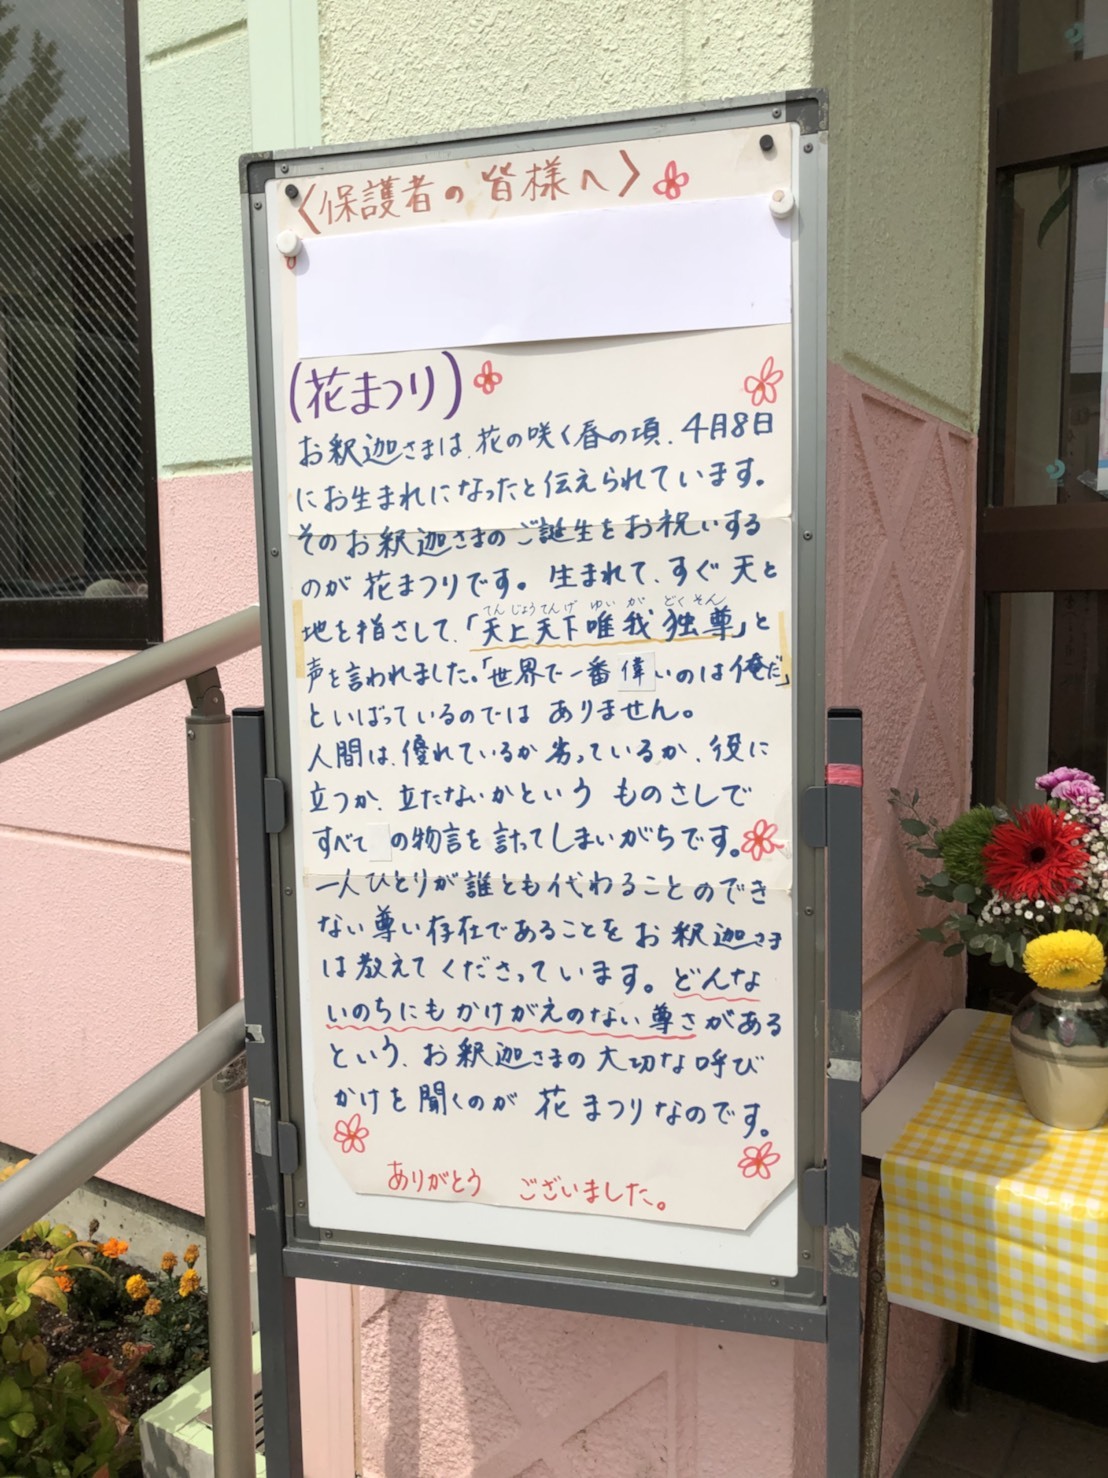 〈保護者の皆様へ〉
(花まつり)
お釈迦さまは、花の咲く春の頃、4月8日
にお生まれになったと伝えられています。
そのお釈迦さまのご誕生をお祝いする
のが花まつりです。生まれて、すぐ天と
てんじょうてんげ ゆいが どくそん
地を指さして、「天上天下唯我独尊」と
声を言われました。「世界で一番偉いのは俺だ」
といばっているのではありません。
人間は、優れているか劣っているか、役に
立つか、立たないかという ものさしで
すべての物言を計ってしまいがちです。
一人ひとりが誰とも代わることのでき
ない尊い存在であることをお釈迦さま
は教えてくださっています。どんな
いのちにもかけがえのない尊さがある
という、お釈迦さまの大切な呼び
かけを聞くのが 花まつりなのです。
ありがとう ございました。